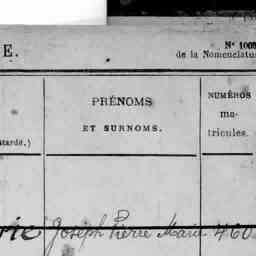 E.
N° 1005
de la Nomenclatu
PRÉNOMS
ET SURNOMS.
NUMÉROS
ma-
tricules.
tarde.)
rie Joseph Pierre Marie 460